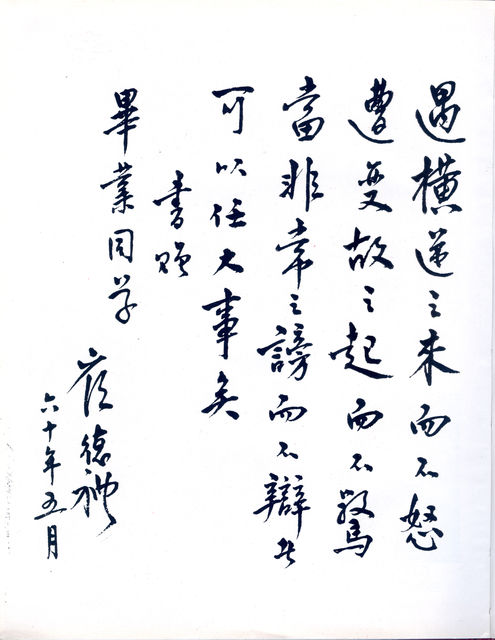 遇橫逆之来而不怒
遭变故之起而不驚
當非常之謗而不辯者
可以任大事矣
書贈
畢業同学
崔德禮
六十年五月